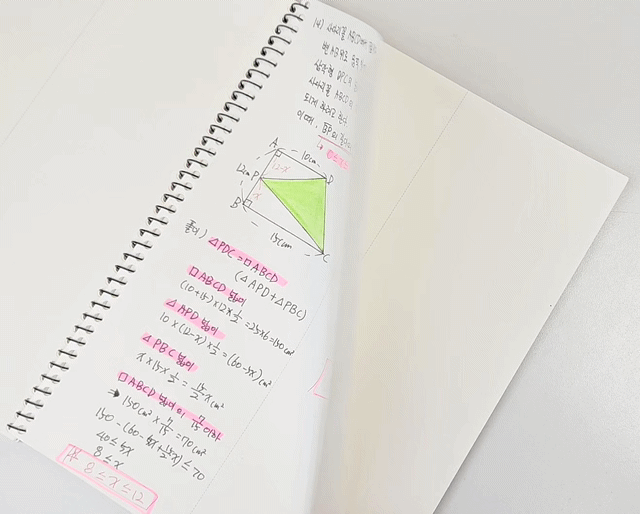 14) 사다리꼴 ABCD에서
변 AB위로 움직
삼각형 DPC의
사다리꼴 ABCD의
되게 하려고 한다.
이때,
A
10cm
12-x
12cm
P
D
x
B
15cm
C
풀이)
△PDC = □ABCD
(△APD+△PBC)
□ABCD 넓이
(10+15)×12×1/2=25×6=150cm²
△APD 넓이
10×(12-x)×1/2=(60-5x)cm²
△PBC 넓이
x×15×1/2=15/2xcm²
□ABCD 넓이의 7/15이하
→ 150cm²×7/15=70cm²
150-(60-5x+15/2x)≤70
8≤x
8≤x≤12